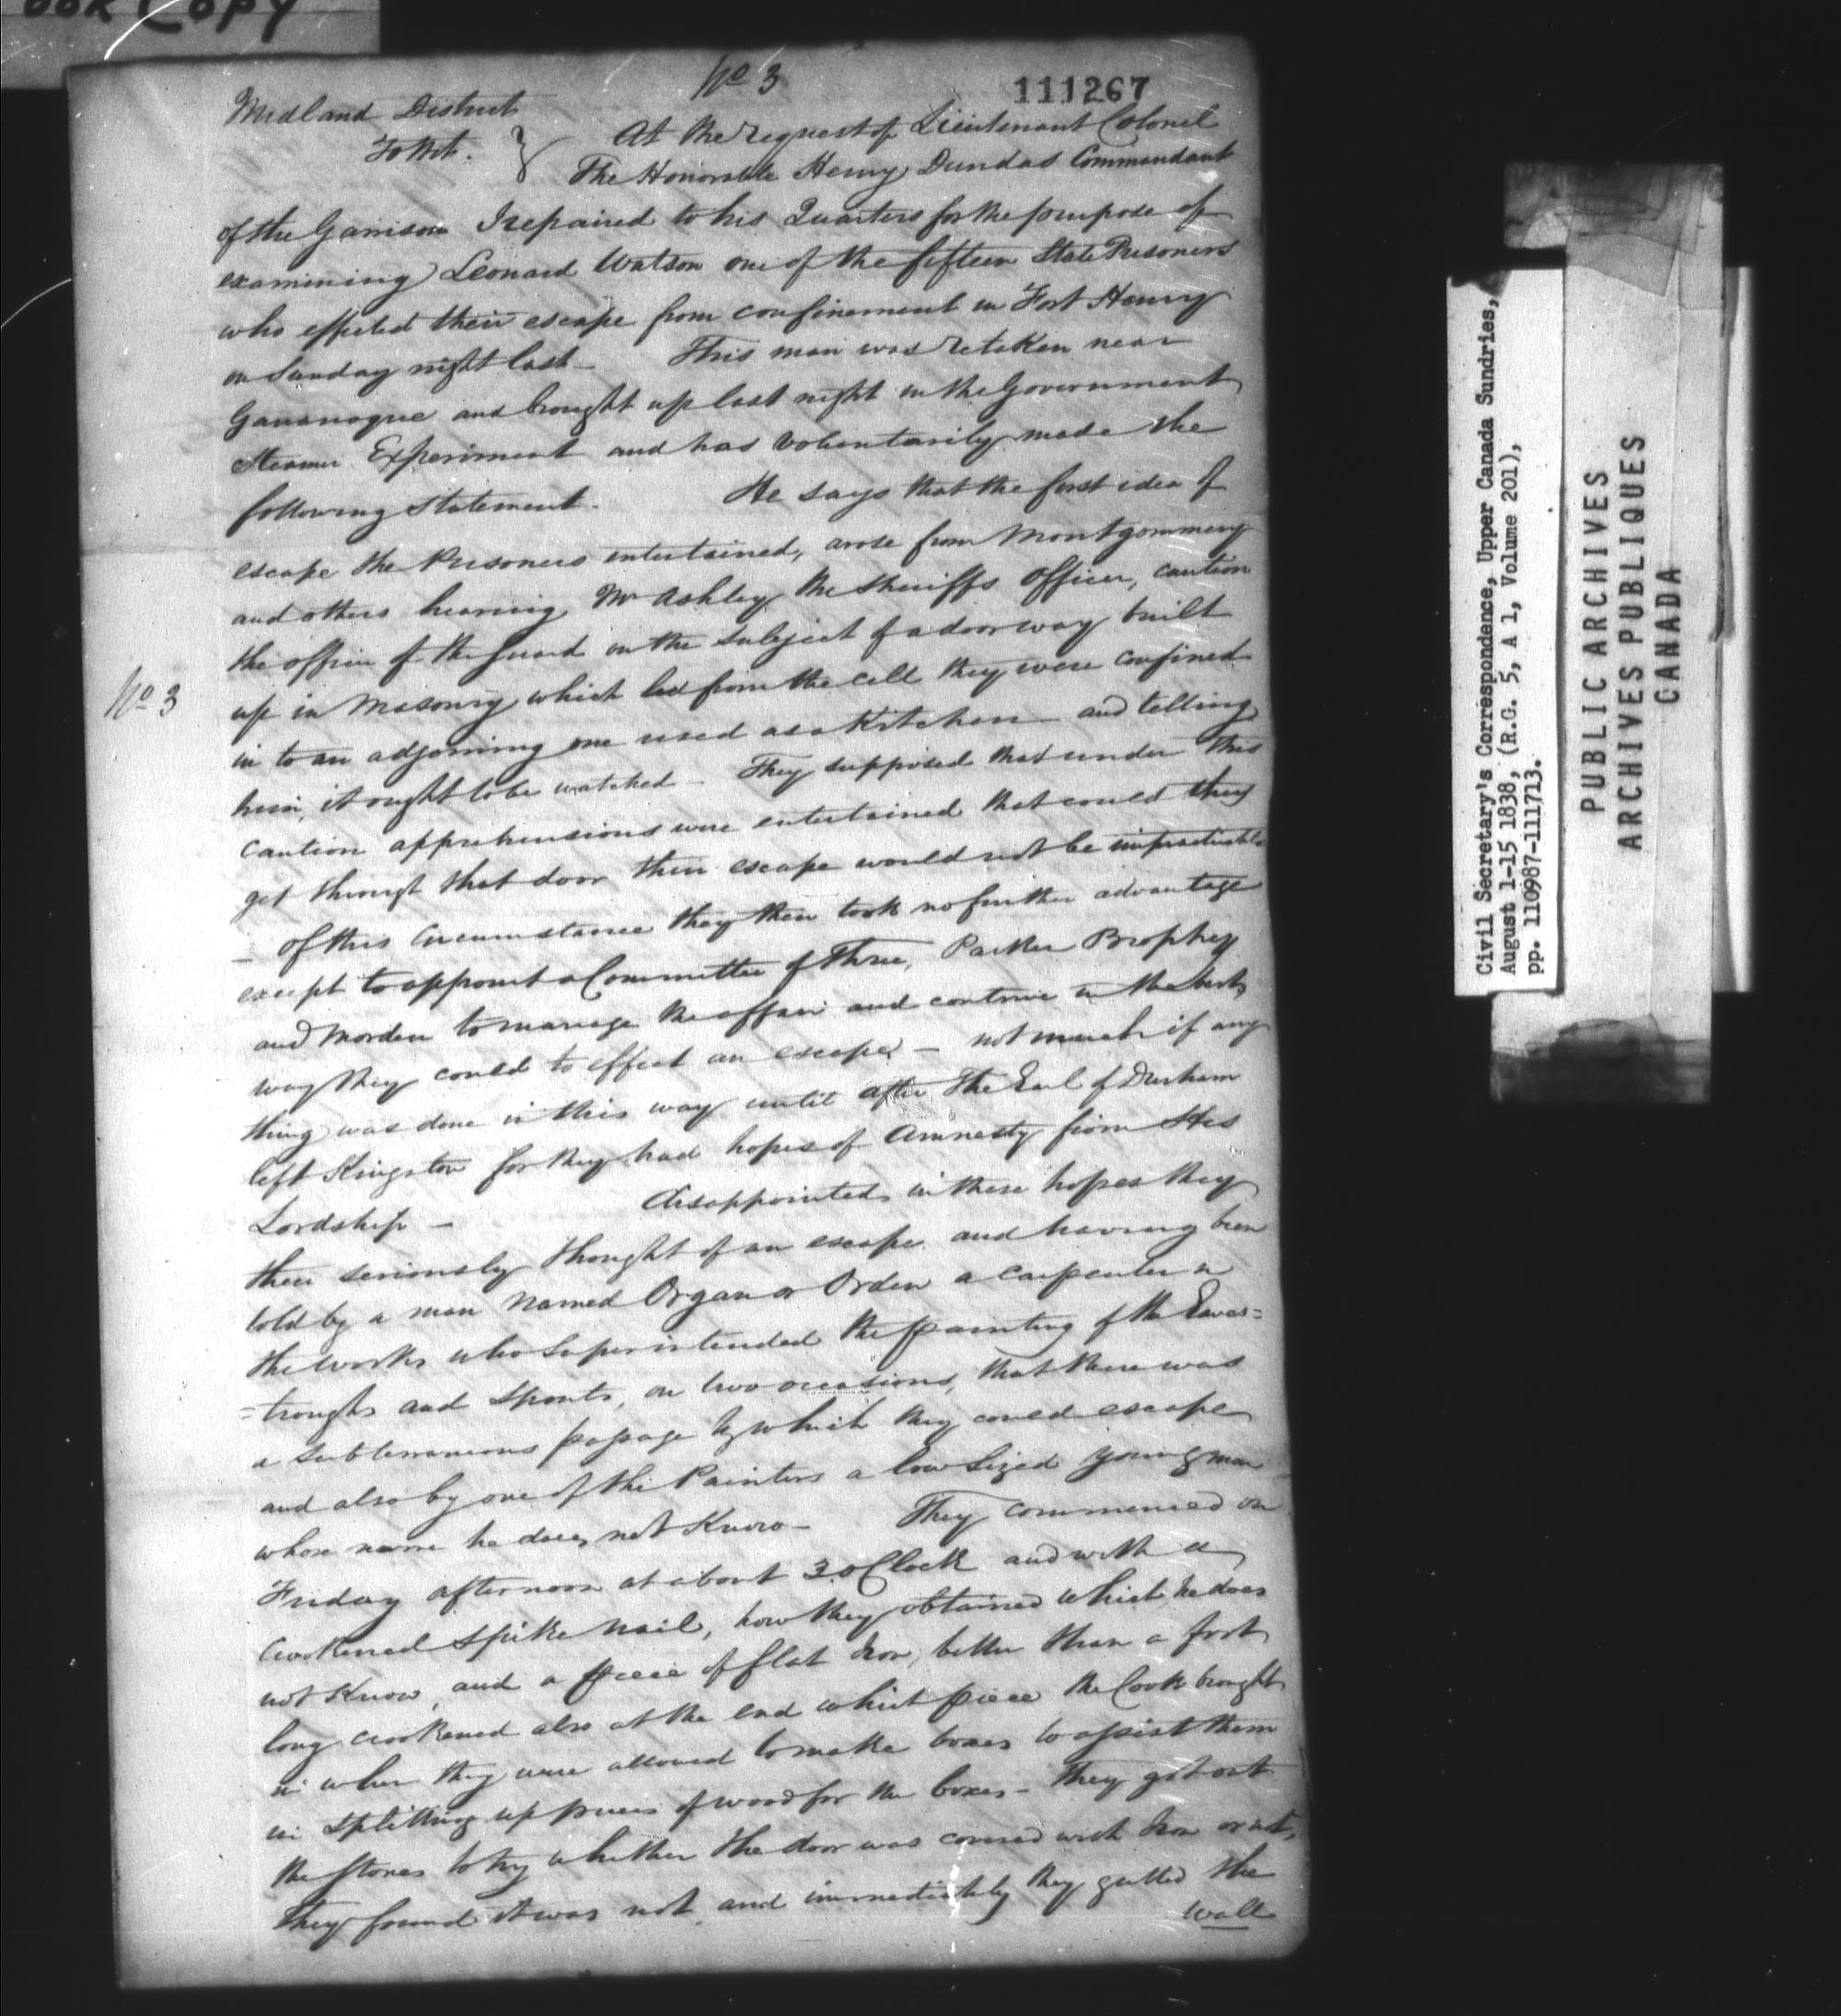 ook Copy
No 3
111267
Midland District
To Wit. } At the request of Lieutenant Colonel
The Honorable Henry Dundas Commandant
of the Garrison I repaired to his Quarters for the purpose of
examining Leonard Watson one of the fifteen State Prisoners
who effected their escape from confinement in Fort Henry
on Sunday night last - This man was retaken near
Gananoque and brought up last night in the Government
Steamer Experiment and has voluntarily made the
following statement. He says that the first idea of
escape the Prisoners entertained, arose from Montgommery
and others hearing Mr Ashley the Sheriffs Officer, caution
the officer of the Guard on the subject of a doorway built
No 3
up in Masonry which led from the cell they were confined
in to an adjoining one used as a Kitchen and telling
him, it ought to be watched - They supposed that under this
caution apprehensions were entertained that could they
get through that door their escape would not be impracticable
- Of this circumstance they then took no further advantage
except to appoint a Committee of Three, Parker Brophey
and Morden to manage the affair and contrive in the best
way they could to effect an escape - not much if any
thing was done in this way until after The Earl of Durham
left Kingston for they had hopes of Amnesty from His
Lordship - disappointed in these hopes they
then seriously thought of an escape and having been
told by a man named Organ or Orden a carpenter in
the works who superintended the painting of the Eaves=
=troughs and Spouts, on two occasions, that there was
a subterraneous passage by which they could escape
and also by one of the Painters a low sized young man
whose name he does not Know - They commenced on
Friday afternoon at about 3 oClock and with a
crookened spike nail, how they obtained which he does
not Know, and a piece of flat Iron, better than a foot
long crookened also at the end which piece the Cook brought
in when they were allowed to make boxes to assist them
in splitting up pieces of wood for the boxes - They got out
the stones to try whether the door was covered with Iron or not,
They found it was not, and immediately they gutted the
wall
Civil Secretary's Correspondence, Upper Canada Sundries,
August 1-15 1838, (R.G. 5, A 1, Volume 201),
pp. 110987-111713.
PUBLIC ARCHIVES
ARCHIVES PUBLIQUES
CANADA